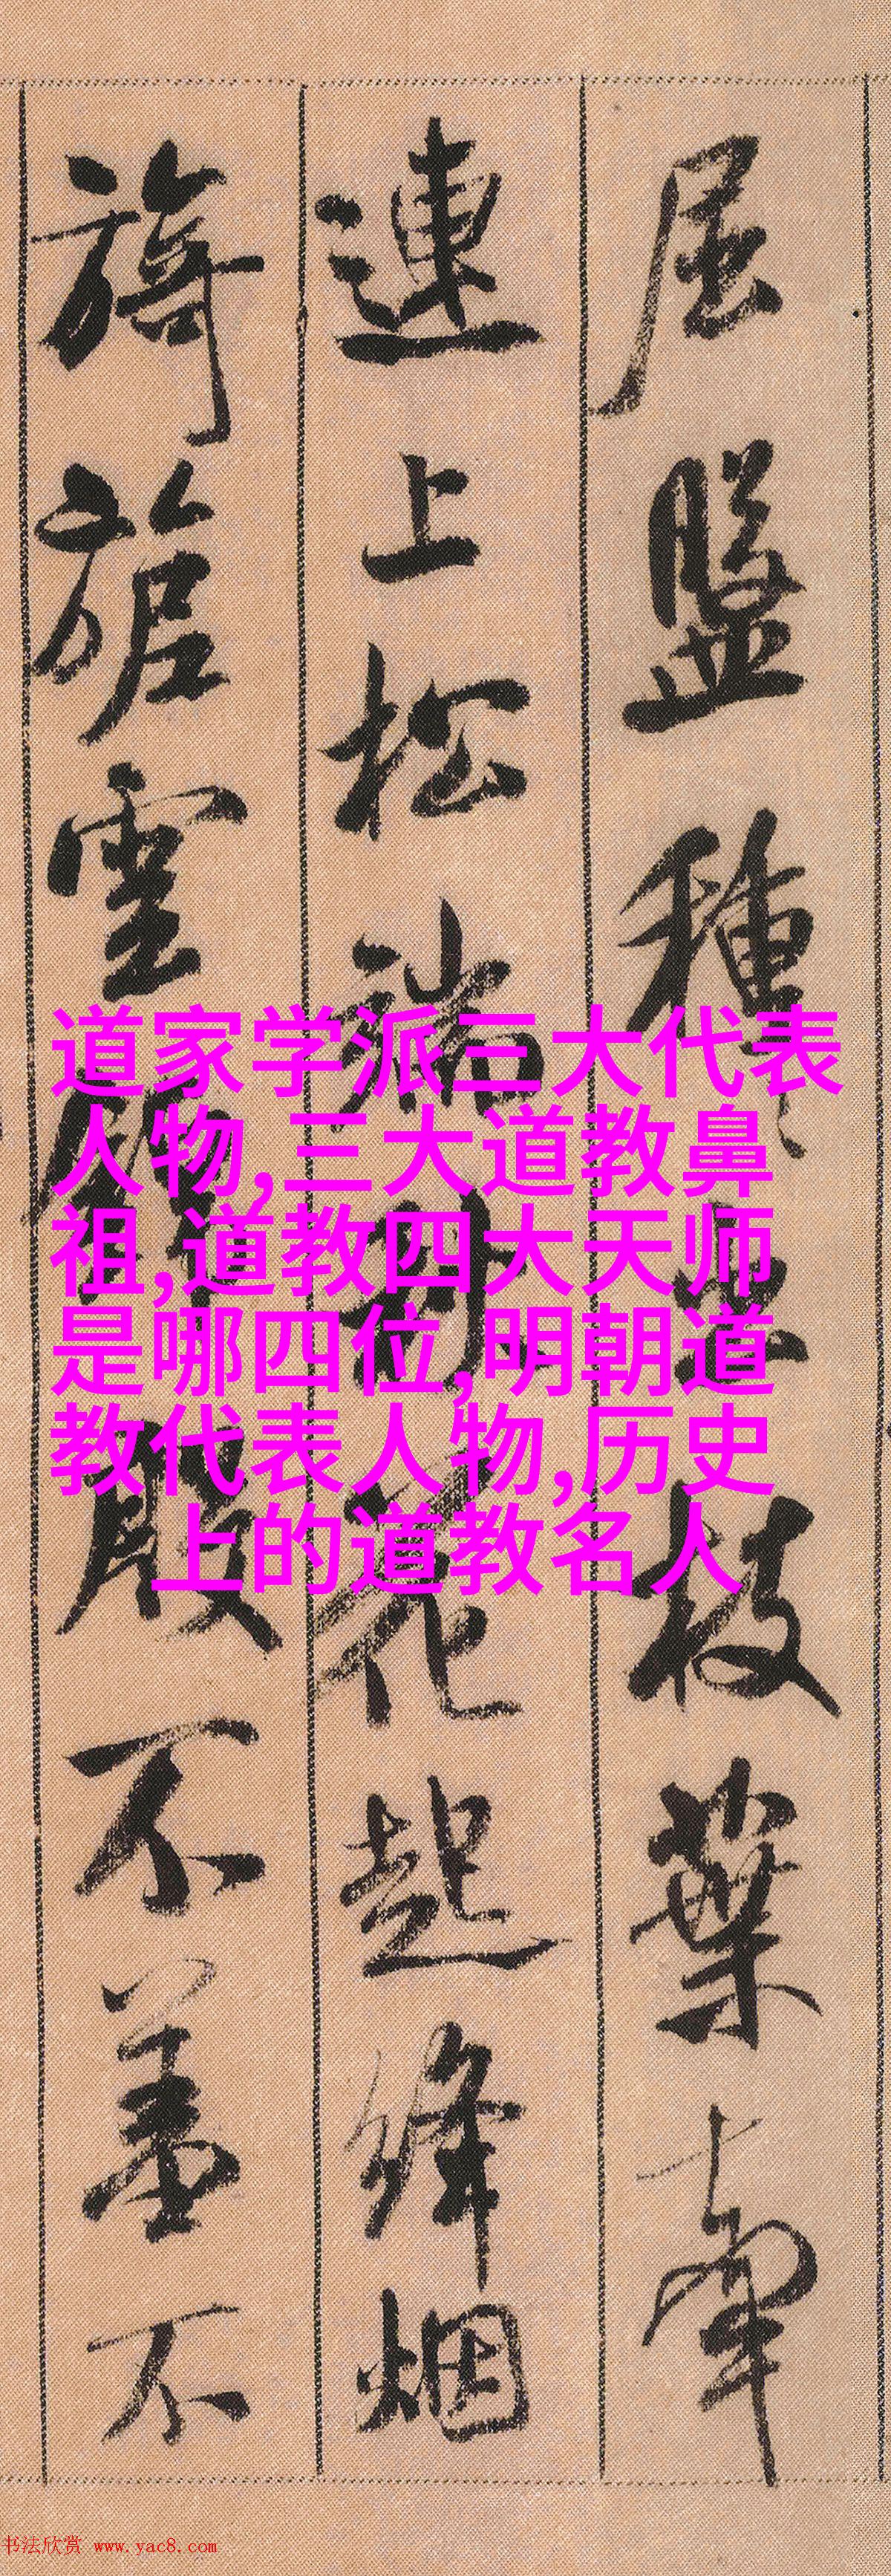 屈盤種種枝葉牽
連上松端秋花起絳烟
旖旎雲錦殷不羞不
道家学派三大代表
人物,三大道教鼻
祖,道教四大天师
是哪四位,明朝道
教代表人物,历史
上的道教名人
书法欣赏 www.yac8.com